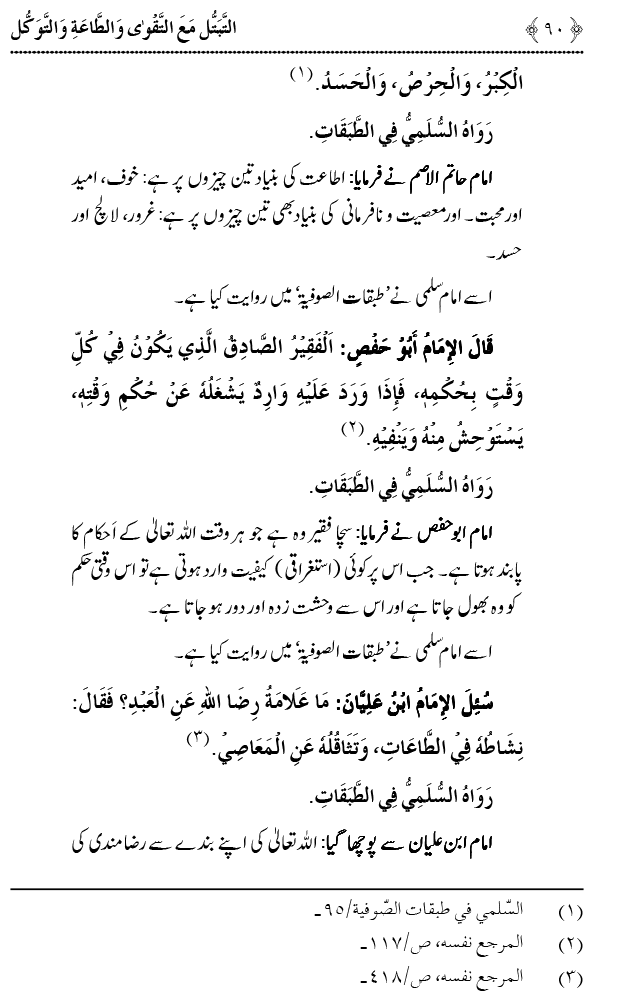 ﴿٩٠﴾ التَّبَتُّل مَعَ التَّقْوٰى وَالطَّاعَةِ وَالتَّوَكُّل
الْكِبْرُ، وَالْحِرْصُ، وَالْحَسَدُ.(١)
رَوَاهُ السُّلَمِيُّ فِي الطَّبَقَاتِ.
امام حاتم الاصم نے فرمایا: اطاعت کی بنیاد تین چیزوں پر ہے: خوف، امید
اور محبت۔ اور معصیت و نافرمانی کی بنیاد بھی تین چیزوں پر ہے: غرور، لالچ اور
حسد۔
اسے امام سلمی نے ’طبقات الصوفیۃ‘ میں روایت کیا ہے۔
قَالَ الإِمَامُ أَبُوْ حَفْصٍ: اَلْفَقِيْرُ الصَّادِقُ الَّذِي يَكُوْنُ فِيْ كُلِّ
وَقْتٍ بِحُكْمِهٖ، فَإِذَا وَرَدَ عَلَيْهِ وَارِدٌ يَشْغَلُهٗ عَنْ حُكْمِ وَقْتِهٖ،
يَسْتَوْحِشُ مِنْهُ وَيَنْفِيْهِ.(٢)
رَوَاهُ السُّلَمِيُّ فِي الطَّبَقَاتِ.
امام ابو حفص نے فرمایا: سچا فقیر وہ ہے جو ہر وقت اللہ تعالیٰ کے اَحکام کا
پابند ہوتا ہے۔ جب اس پر کوئی (استغراقی) کیفیت وارد ہوتی ہے تو اس وقتی حکم
کو وہ بھول جاتا ہے اور اس سے وحشت زدہ اور دور ہو جاتا ہے۔
اسے امام سلمی نے ’طبقات الصوفیۃ‘ میں روایت کیا ہے۔
سُئِلَ الإِمَامُ ابْنُ عَلِيَّانَ: مَا عَلَامَةُ رِضَا اللهِ عَنِ الْعَبْدِ؟ فَقَالَ:
نِشَاطُهٗ فِيْ الطَّاعَاتِ، وَتَثَاقُلُهٗ عَنِ الْمَعَاصِيْ.(٣)
رَوَاهُ السُّلَمِيُّ فِي الطَّبَقَاتِ.
امام ابن علیان سے پوچھا گیا: اللہ تعالیٰ کی اپنے بندے سے رضا مندی کی
(١) السّلمي في طبقات الصّوفية/٩٥۔
(٢) المرجع نفسه، ص/١١٧۔
(٣) المرجع نفسه، ص/٤١٨۔